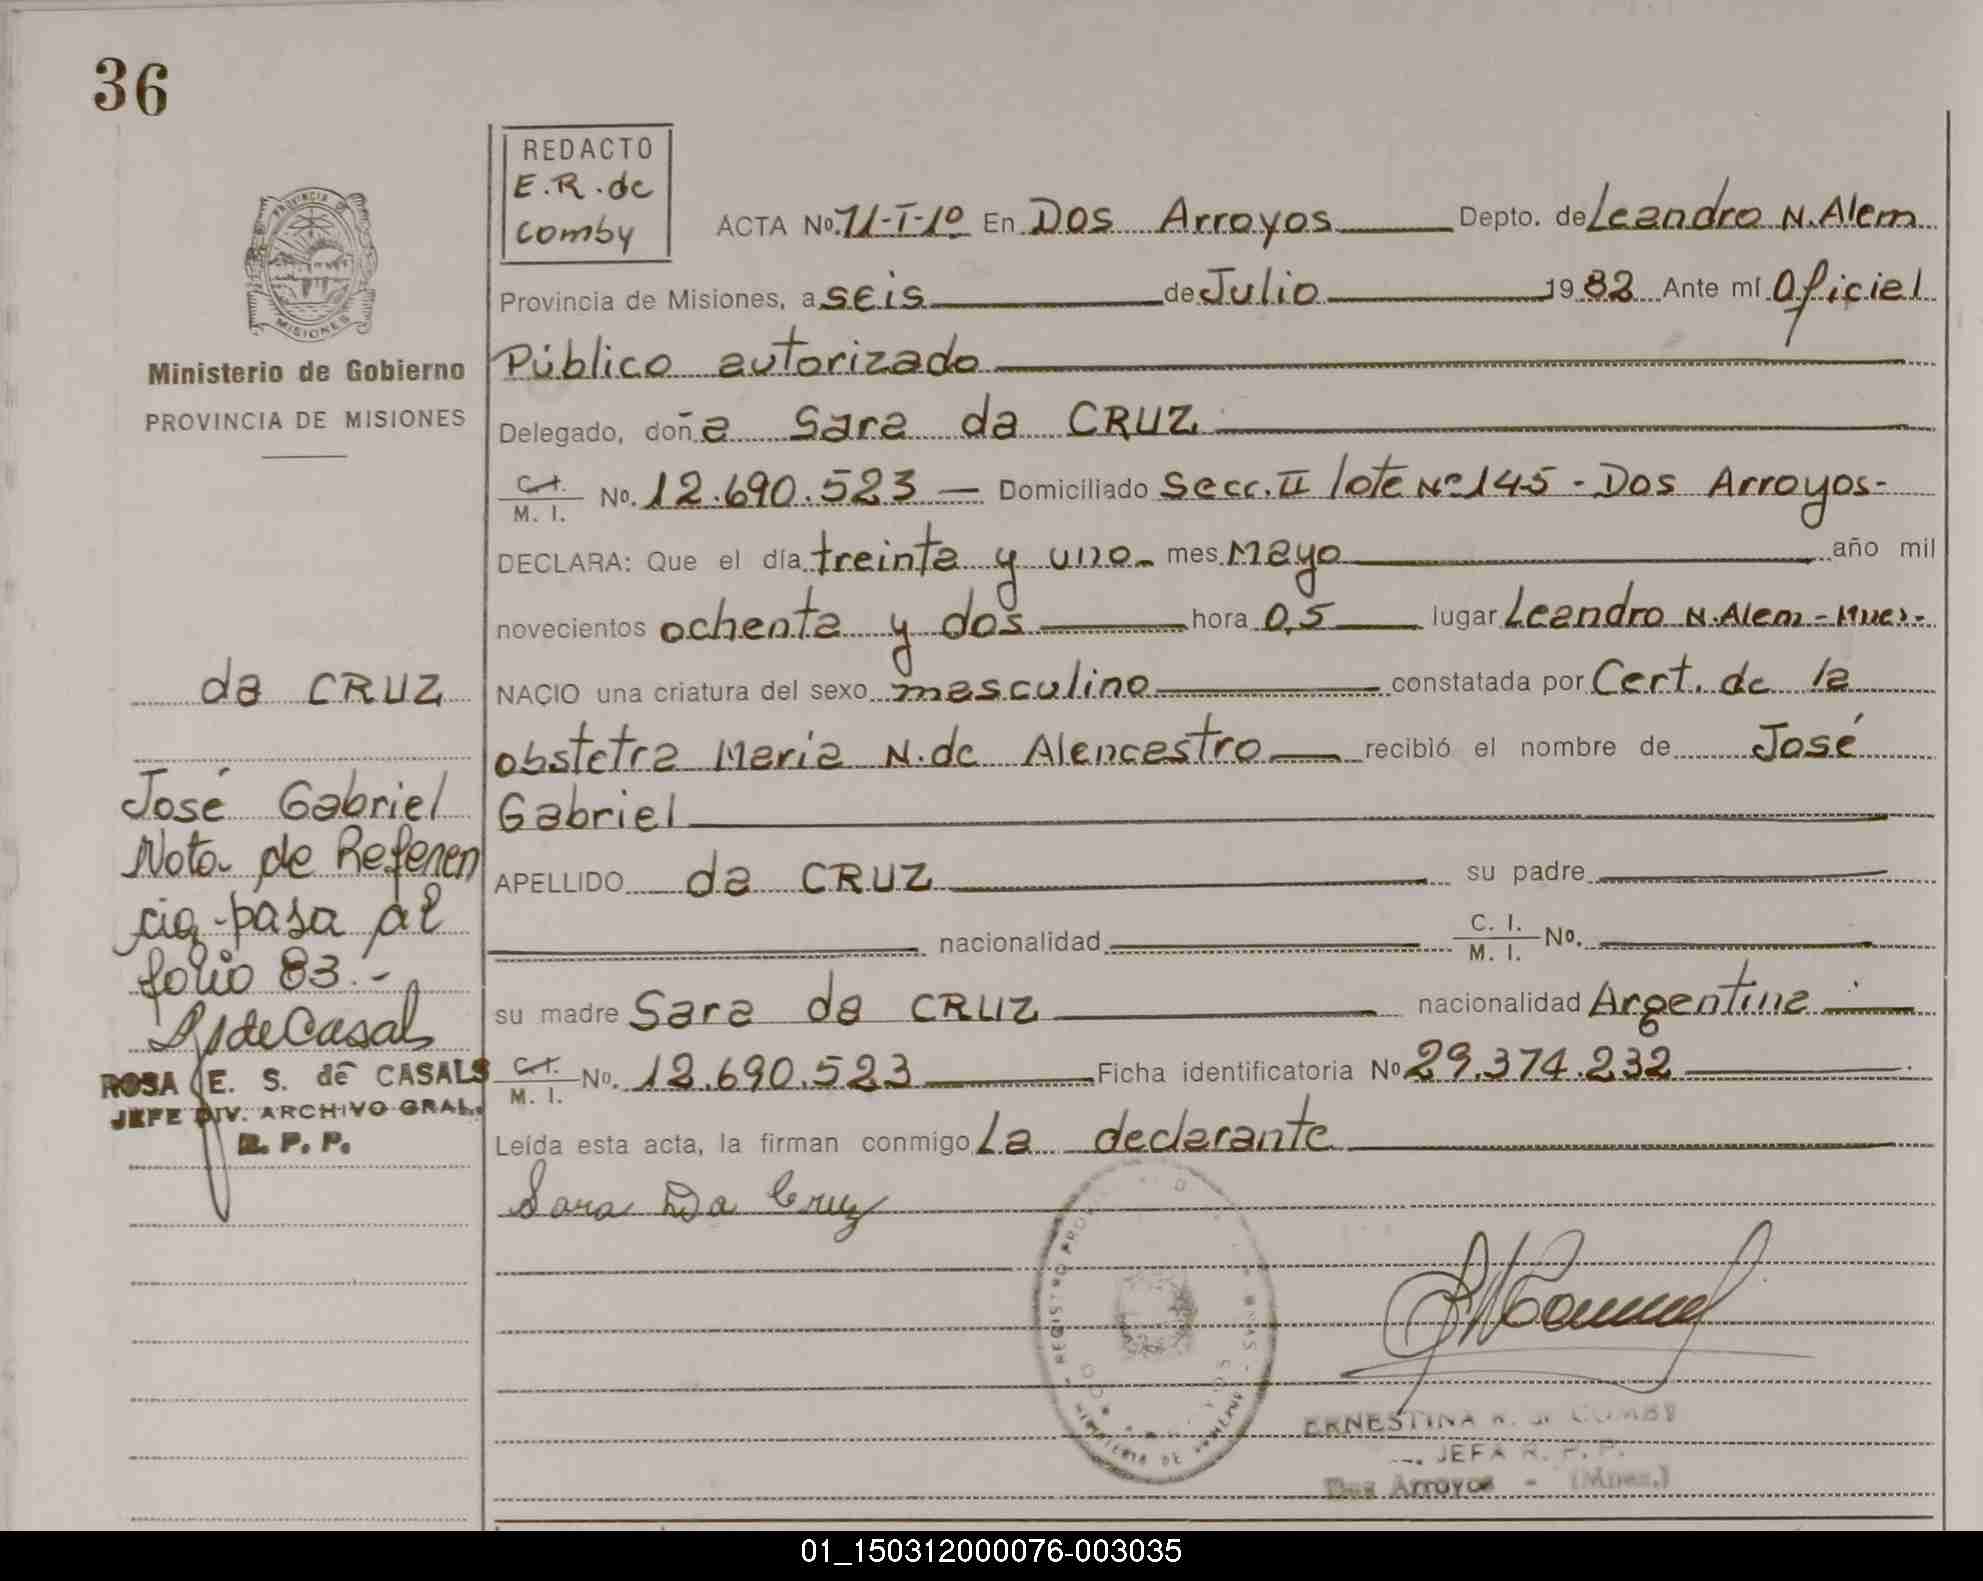 36
REDACTO
E.R. de
Comby
ACTA No. 71-T-1º En Dos Arroyos Depto. de Leandro N. Alem
PROVINCIA DE
MISIONES
Provincia de Misiones, a seis de Julio 1982 Ante mí Oficial
Ministerio de Gobierno
PROVINCIA DE MISIONES
Público autorizado
Delegado, doña Sara da CRUZ
C.I.
M. I. No. 12.690.523 Domiciliado Secc. II lote Nº 145 - Dos Arroyos-
DECLARA: Que el día treinta y uno mes Mayo año mil
novecientos ochenta y dos hora 0,5 lugar Leandro N. Alem -
da CRUZ
NACIO una criatura del sexo masculino constatada por Cert. de la
obstetra Maria N. de Alencastro recibió el nombre de José
José Gabriel
Gabriel
Nota de Referen
cia pasa al
folio 83.-
APELLIDO da CRUZ su padre
nacionalidad C. I.
M. I. No.
su madre Sara da CRUZ nacionalidad Argentina
ROSA E. S. de CASALS
JEFE DIV. ARCHIVO GRAL.
R. P. P.
C.I.
M. I. No. 12.690.523 Ficha identificatoria No 29.374.232
Leída esta acta, la firman conmigo La declarante
Sara Da Cruz
REGISTRO
ERNESTINA R. COMBY
JEFA R. P. P.
Dos Arroyos - (Mnes.)
01_150312000076-003035